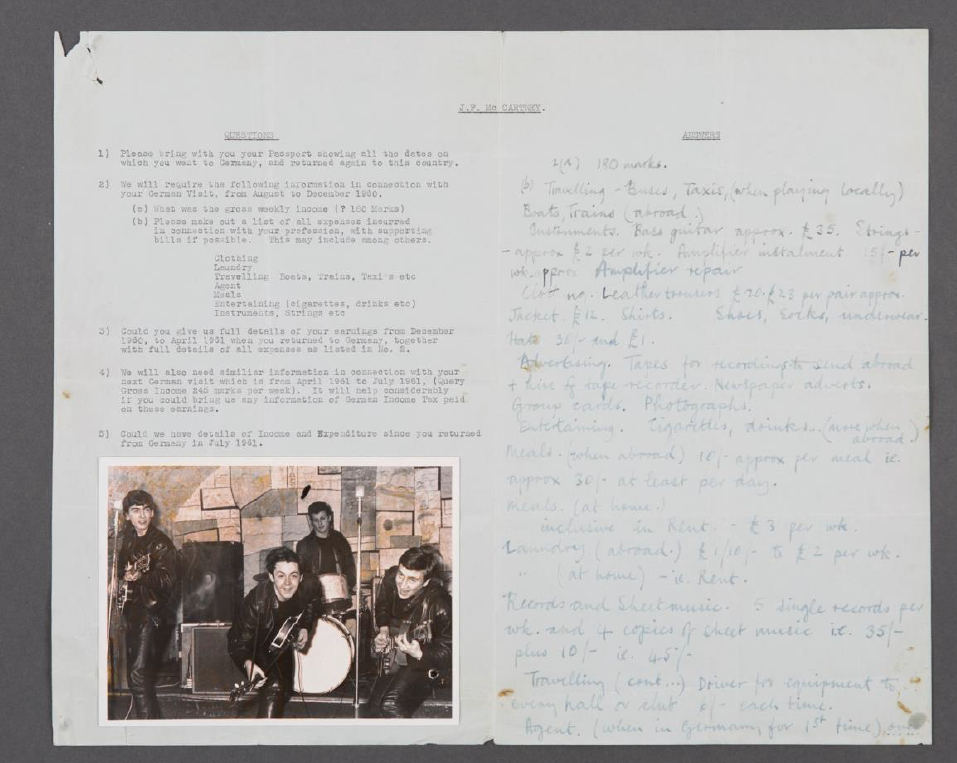 J.P. Mc CARTNEY.
QUESTIONS
1) Please bring with you your Passport showing all the dates on
which you went to Germany, and returned again to this country.
2) We will require the following information in connection with
your German Visit, from August to December 1960.
(a) What was the gross weekly income (? 180 Marks)
(b) Please make out a list of all expenses incurred
in connection with your profession, with supporting
bills if possible. This may include among others.
Clothing
Laundry
Travelling Boats, Trains, Taxi's etc
Agent
Meals
Entertaining (cigarettes, drinks etc)
Instruments, Strings etc
3) Could you give us full details of your earnings from December
1960, to April 1961 when you returned to Germany, together
with full details of all expenses as listed in No. 2.
4) We will also need similar information in connection with your
next German visit which is from April 1961 to July 1961, (Query
Gross Income 245 marks per week). It will help considerably
if you could bring us any information of German Income Tax paid
on these earnings.
5) Could we have details of Income and Expenditure since you returned
from Germany in July 1961.
ANSWERS
2(A) 180 marks.
(b) Travelling - Buses, Taxis, (when playing locally)
Boats, Trains (abroad.)
Instruments. Bass guitar approx. £35. Strings -
- approx £2 per wk. Amplifier instalment 15/- per
wk. approx Amplifier repair
Leather trousers £20-£23 per pair approx.
Jacket. £12. Shirts. Shoes, Socks, underwear.
Hats 30/- and £1.
Advertising. Tapes for recordings to send abroad
+ hire of tape-recorder. Newspaper adverts.
Group cards. Photographs.
Entertaining. Cigarettes, drinks. (more when
abroad.)
Meals. (when abroad) 10/- approx per meal ie.
approx 30/- at least per day.
Meals. (at home.)
inclusive in Rent. - £3 per wk.
Laundry (abroad.) £1/10/- to £2 per wk.
" (at home) - ie. Rent.
Records and Sheet music. 5 single records per
wk. and 4 copies of sheet music ie. 35/-
plus 10/- ie. 45/-
Travelling (cont...) Driver for equipment to
every hall or club each time.
Agent. (when in Germany for 1st time)